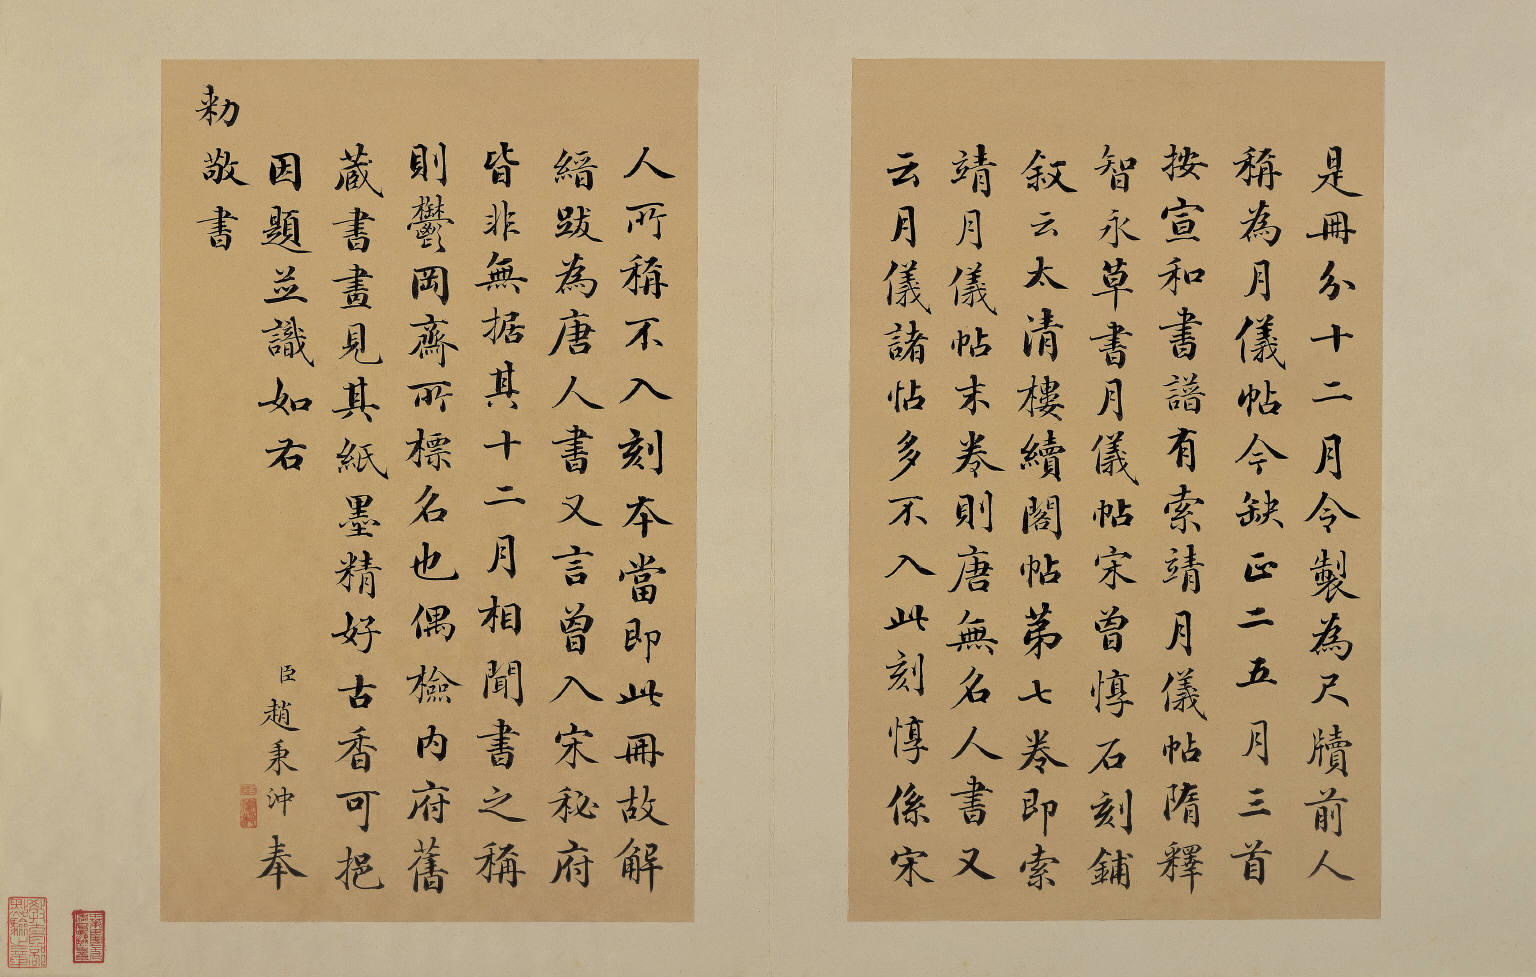 是冊分十二月令製為尺牘前人
稱為月儀帖今缺正二五月三首
按宣和書譜有索靖月儀帖隋釋
智永草書月儀帖宋曾惇石刻鋪
敘云太清樓續閣帖第七卷即索
靖月儀帖末卷則唐無名人書又
云月儀諸帖多不入此刻惇係宋
人所稱不入刻本當即此冊故解
縉跋為唐人書又言曾入宋秘府
皆非無据其十二月相聞書之稱
則鬱岡齋所標名也偶檢內府舊
蔵書畫見其紙墨精好古香可挹
因題並識如右
臣趙秉沖奉
勑敬書